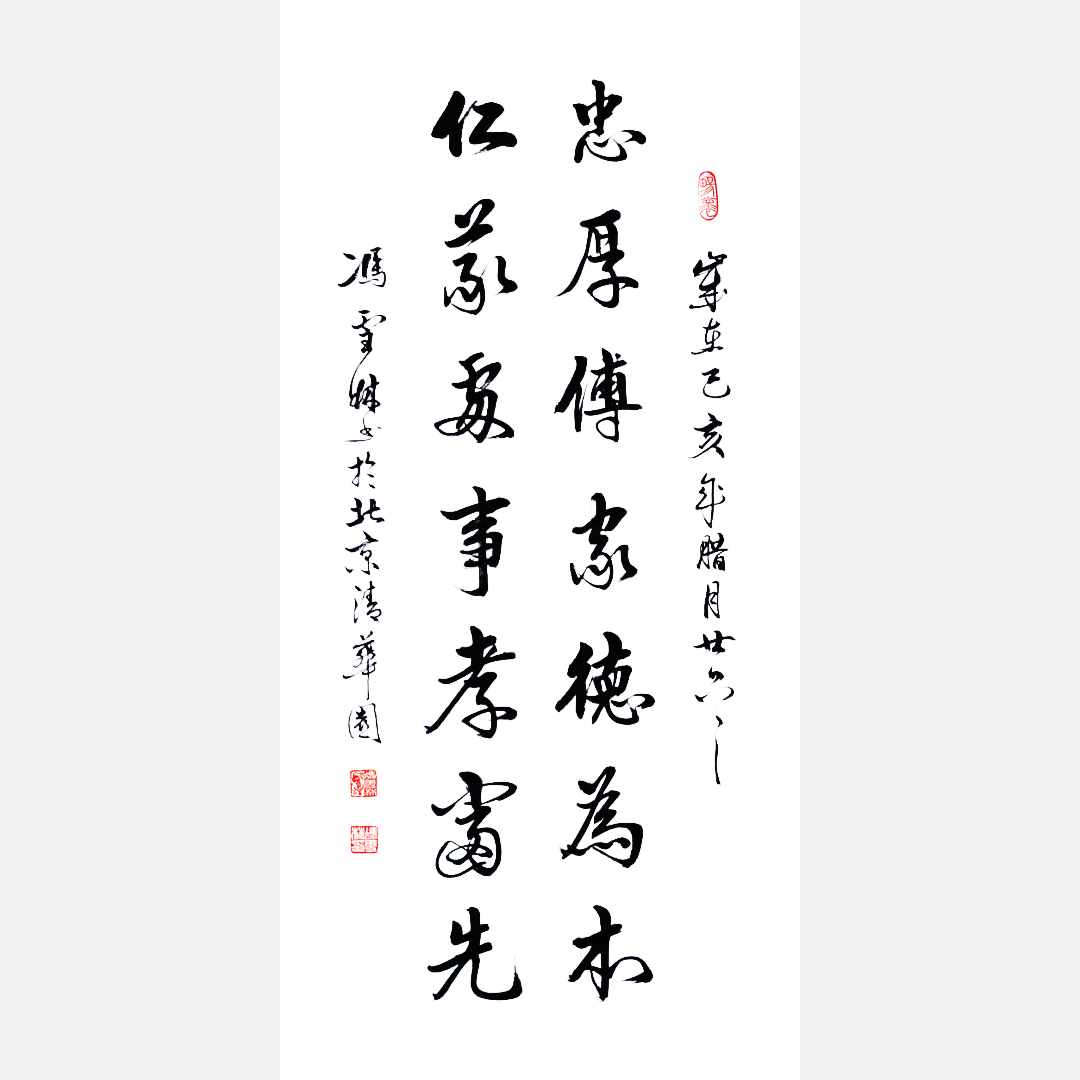 歲在己亥年腊月廿六
忠厚傳家德為本
仁義處事孝當先
馮雪林书於北京清華園